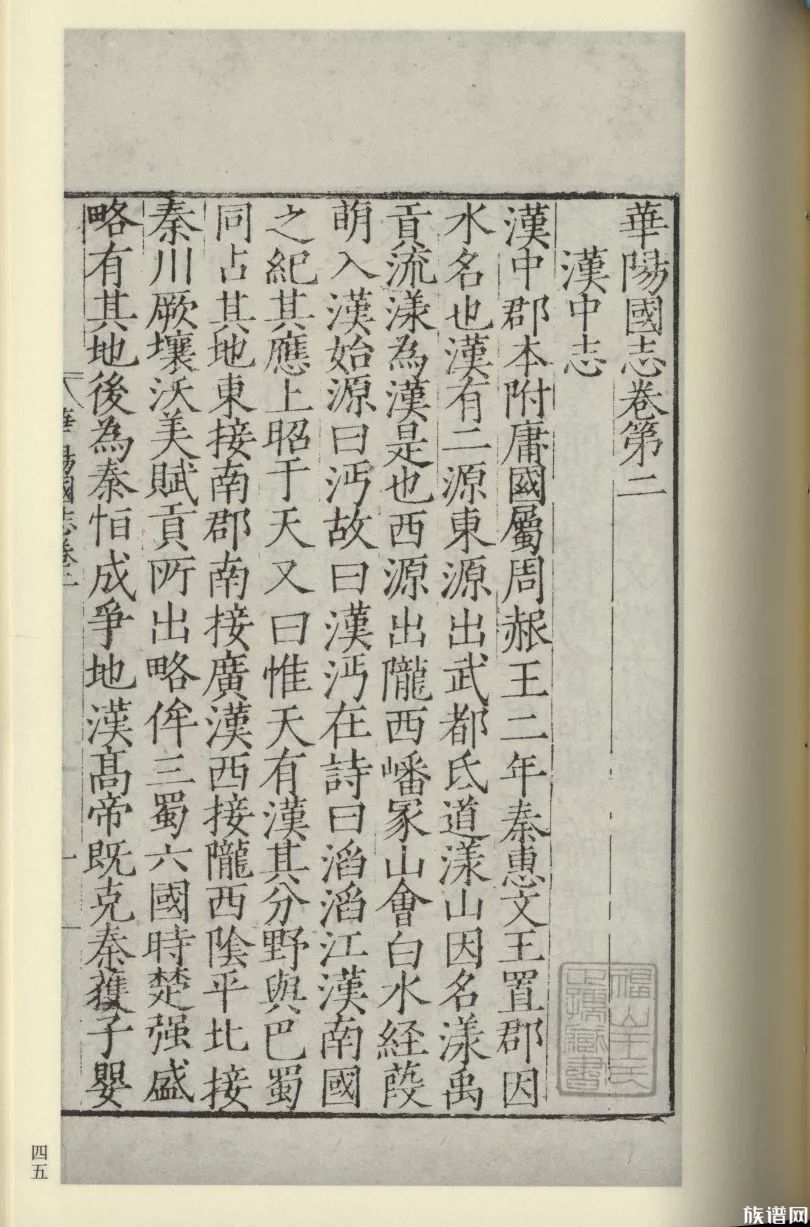 華陽國志卷第二
漢中志
漢中郡本附庸國屬周赧王二年秦惠文王置郡因
水名也漢有二源東源出武都氐道漾山因名漾禹
貢流漾為漢是也西源出隴西嶓冢山會白水経葭
萌入漢始源曰沔故曰漢沔在詩曰滔滔江漢南國
之紀其應上昭于天又曰惟天有漢其分野與巴蜀
同占其地東接南郡南接廣漢西接隴西陰平北接
秦川厥壤沃美賦貢所出略侔三蜀六國時楚强盛
略有其地後為秦怕成爭地漢高帝既克秦獲子嬰
華陽國志卷二
福山王氏
四五
族谱网